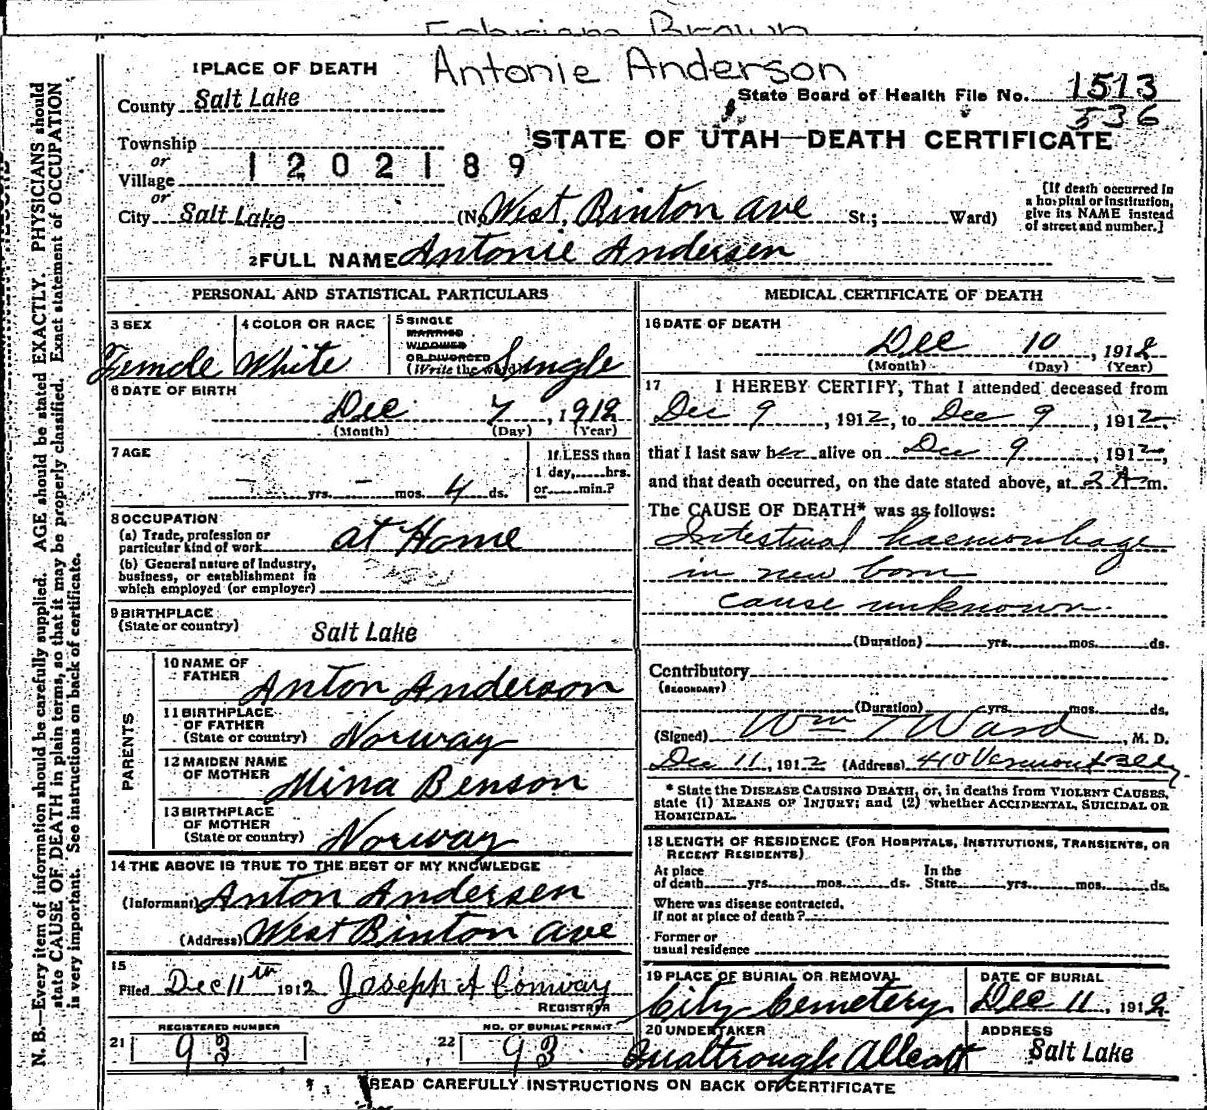 Antonie Anderson
1 PLACE OF DEATH
County Salt Lake
State Board of Health File No. 1513
536
STATE OF UTAH—DEATH CERTIFICATE
Township
or
Village
1202189
or
City Salt Lake (No. West Binton Ave St.; Ward)
[If death occurred in
a hospital or institution,
give its NAME instead
of street and number.]
2 FULL NAME Antonie Andersen
PERSONAL AND STATISTICAL PARTICULARS
3 SEX
Female
4 COLOR OR RACE
White
5 SINGLE
MARRIED
WIDOWED
OR DIVORCED
(Write the word) Single
6 DATE OF BIRTH
Dec 7, 1912
(Month) (Day) (Year)
7 AGE
- yrs. - mos. 4 ds.
If LESS than
1 day, hrs.
or min.?
8 OCCUPATION
(a) Trade, profession or
particular kind of work at Home
(b) General nature of Industry,
business, or establishment in
which employed (or employer)
9 BIRTHPLACE
(State or country) Salt Lake
PARENTS
10 NAME OF
FATHER Anton Anderson
11 BIRTHPLACE
OF FATHER
(State or country) Norway
12 MAIDEN NAME
OF MOTHER Mina Benson
13 BIRTHPLACE
OF MOTHER
(State or country) Norway
14 THE ABOVE IS TRUE TO THE BEST OF MY KNOWLEDGE
(Informant) Anton Andersen
(Address) West Binton Ave
15
Filed Dec 11th 1912 Joseph A Conway
REGISTRAR
REGISTERED NUMBER
21 93
NO. OF BURIAL PERMIT
22 93
MEDICAL CERTIFICATE OF DEATH
16 DATE OF DEATH
Dec 10, 1912
(Month) (Day) (Year)
17 I HEREBY CERTIFY, That I attended deceased from
Dec 9, 1912, to Dec 9, 1912,
that I last saw her alive on Dec 9, 1912,
and that death occurred, on the date stated above, at 2 A m.
The CAUSE OF DEATH* was as follows:
Intestinal haemorrhage
in new born
cause unknown.
(Duration) yrs. mos. ds.
Contributory
(SECONDARY)
(Duration) yrs. mos. ds.
(Signed) Wm T Ward, M. D.
Dec 11, 1912 (Address) 410 Vermont Bldg
* State the DISEASE CAUSING DEATH, or, in deaths from VIOLENT CAUSES,
state (1) MEANS OF INJURY; and (2) whether ACCIDENTAL, SUICIDAL OR
HOMICIDAL.
18 LENGTH OF RESIDENCE (FOR HOSPITALS, INSTITUTIONS, TRANSIENTS, OR
RECENT RESIDENTS)
At place
of death yrs. mos. ds.
In the
State yrs. mos. ds.
Where was disease contracted,
If not at place of death?
Former or
usual residence
19 PLACE OF BURIAL OR REMOVAL
City Cemetery
DATE OF BURIAL
Dec 11, 1912
20 UNDERTAKER
ADDRESS
Salt Lake
READ CAREFULLY INSTRUCTIONS ON BACK OF CERTIFICATE
N. B.—Every item of information should be carefully supplied. AGE should be stated EXACTLY. PHYSICIANS should
state CAUSE OF DEATH in plain terms, so that it may be properly classified. Exact statement of OCCUPATION
is very important. See instructions on back of certificate.